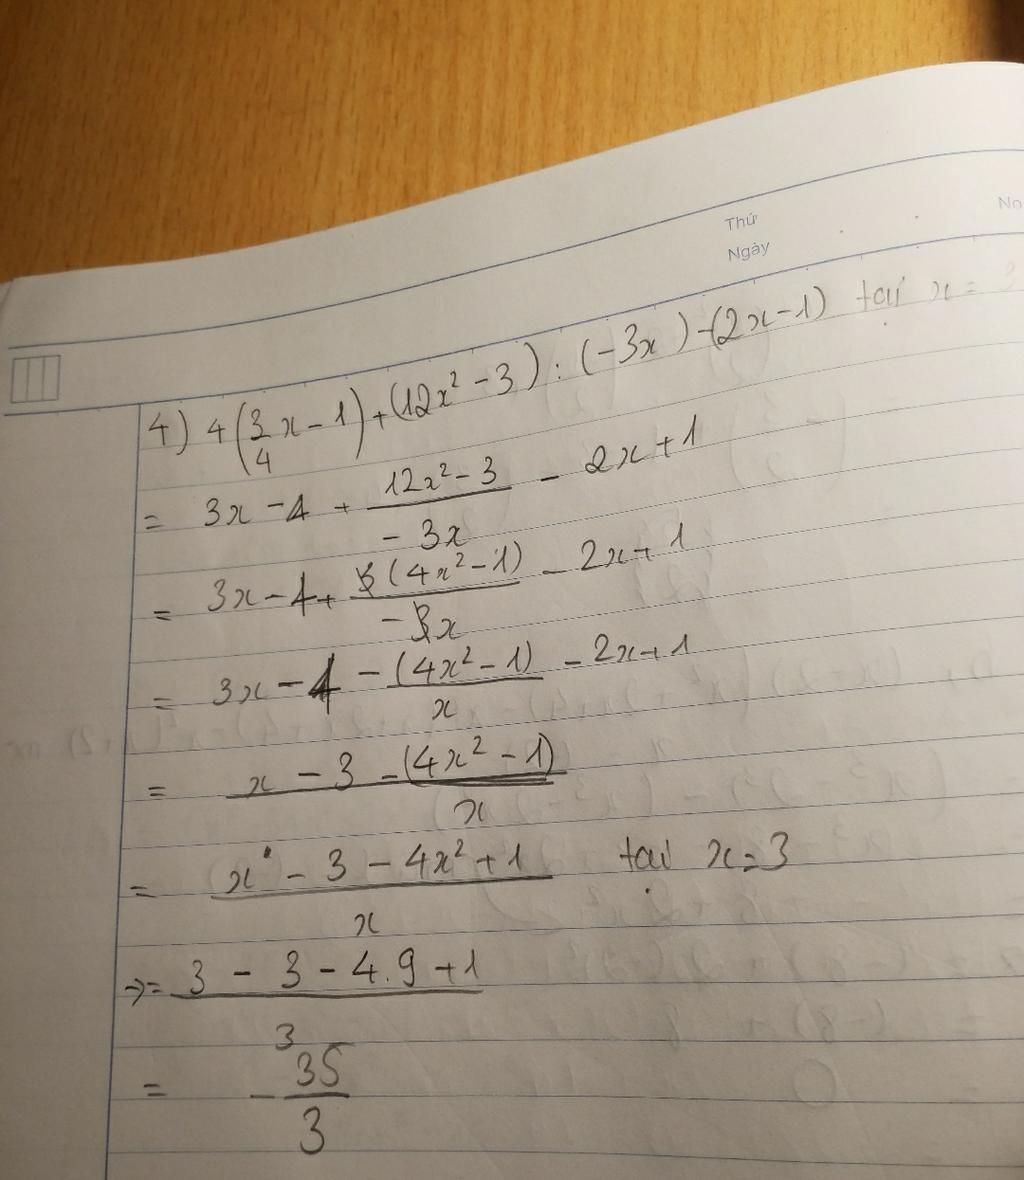 Thứ
Ngày
No
4) 4(3/4 x - 1) + (12x² - 3) : (-3x) - (2x - 1) tại x = 3
= 3x - 4 + (12x² - 3)/(-3x) - 2x + 1
= 3x - 4 + 3(4x² - 1)/(-3x) - 2x + 1
= 3x - 4 - (4x² - 1)/x - 2x + 1
= x - 3 - (4x² - 1)/x
= (x - 3 - 4x² + 1)/x tại x = 3
→ = (3 - 3 - 4.9 + 1)/3
= - 35/3